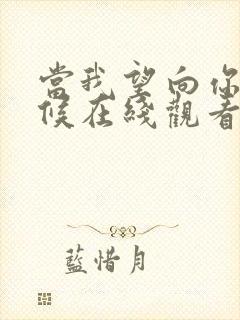 當我望向你
候在綫觀看
藍惜月